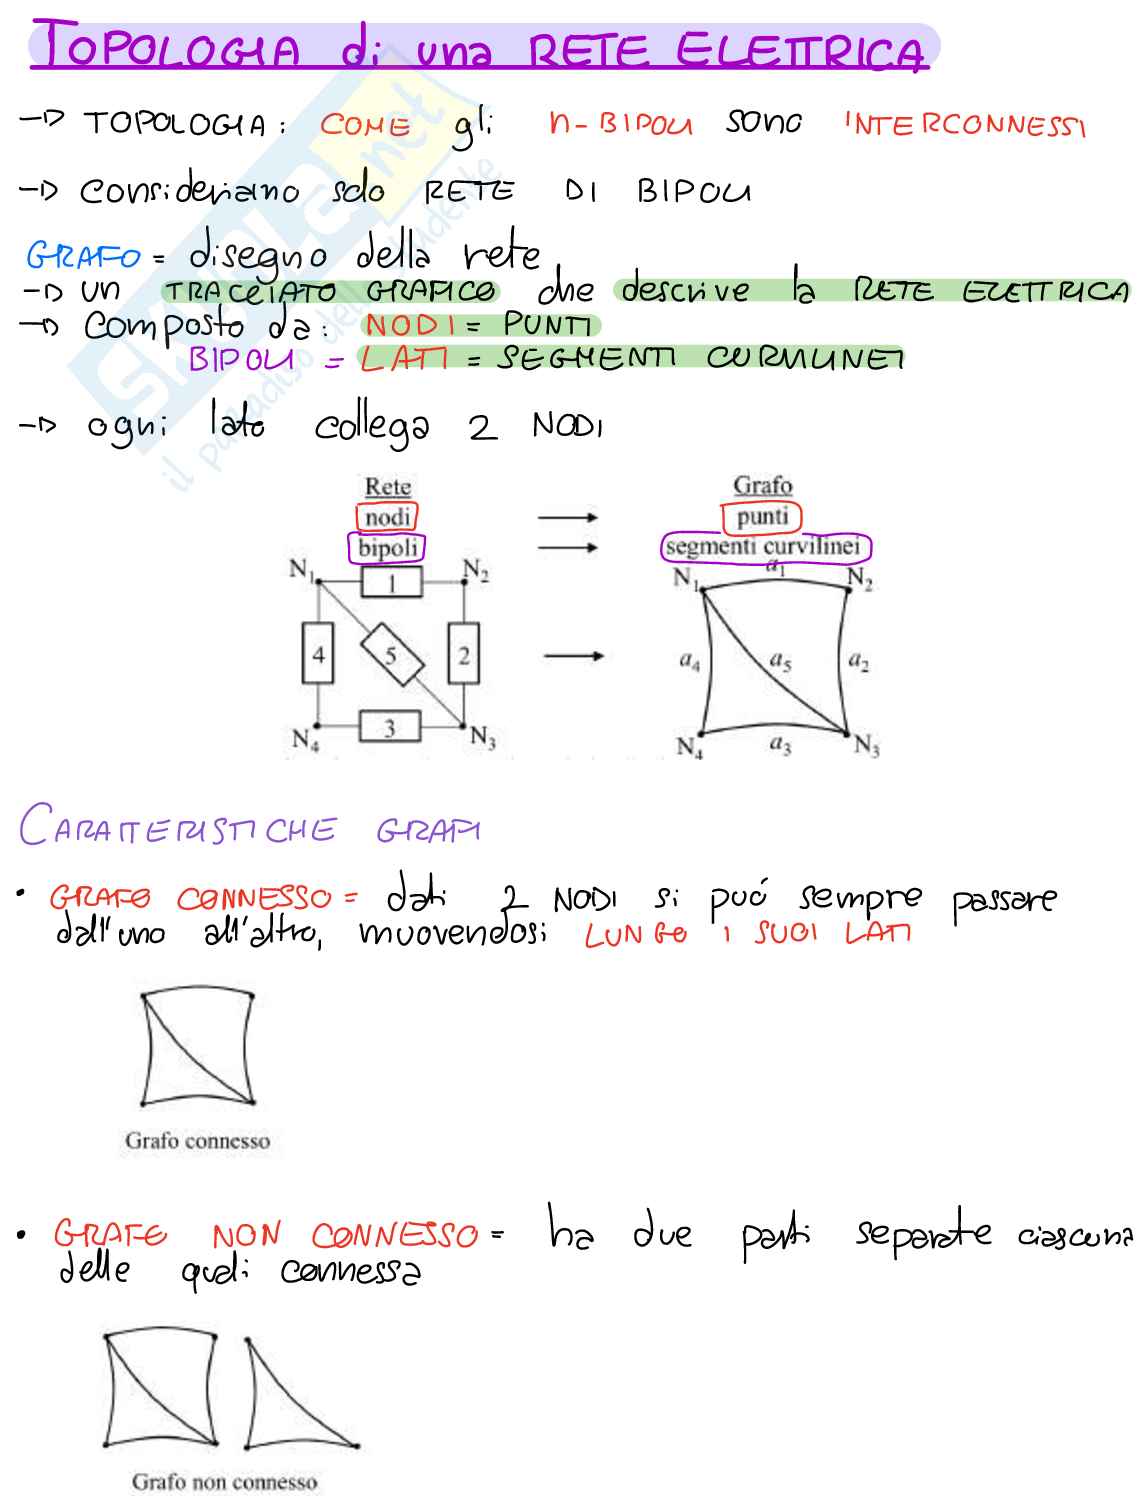 TOPOLOGIA di una RETE ELETTRICA
→ TOPOLOGIA: COME gli n-BIPOLI sono INTERCONNESSI
→ Consideriamo solo RETE DI BIPOLI
GRAFO = disegno della rete
→ un TRACCIATO GRAFICO che descrive la RETE ELETTRICA
→ Composto da: NODI = PUNTI
BIPOLI = LATI = SEGMENTI CURVILINEI
→ ogni lato collega 2 NODI
Rete
nodi
bipoli
N1 1 N2
4 5 2
N4 3 N3
Grafo
punti
segmenti curvilinei
N1 a1 N2
a4 a5 a2
N4 a3 N3
CARATTERISTICHE GRAFI
• GRAFO CONNESSO = dati 2 NODI si può sempre passare
dall'uno all'altro, muovendosi LUNGO I SUOI LATI
Grafo connesso
• GRAFO NON CONNESSO = ha due parti separate ciascuna
delle quali connessa
Grafo non connesso
SKUOLA.net
il paradiso dello studente